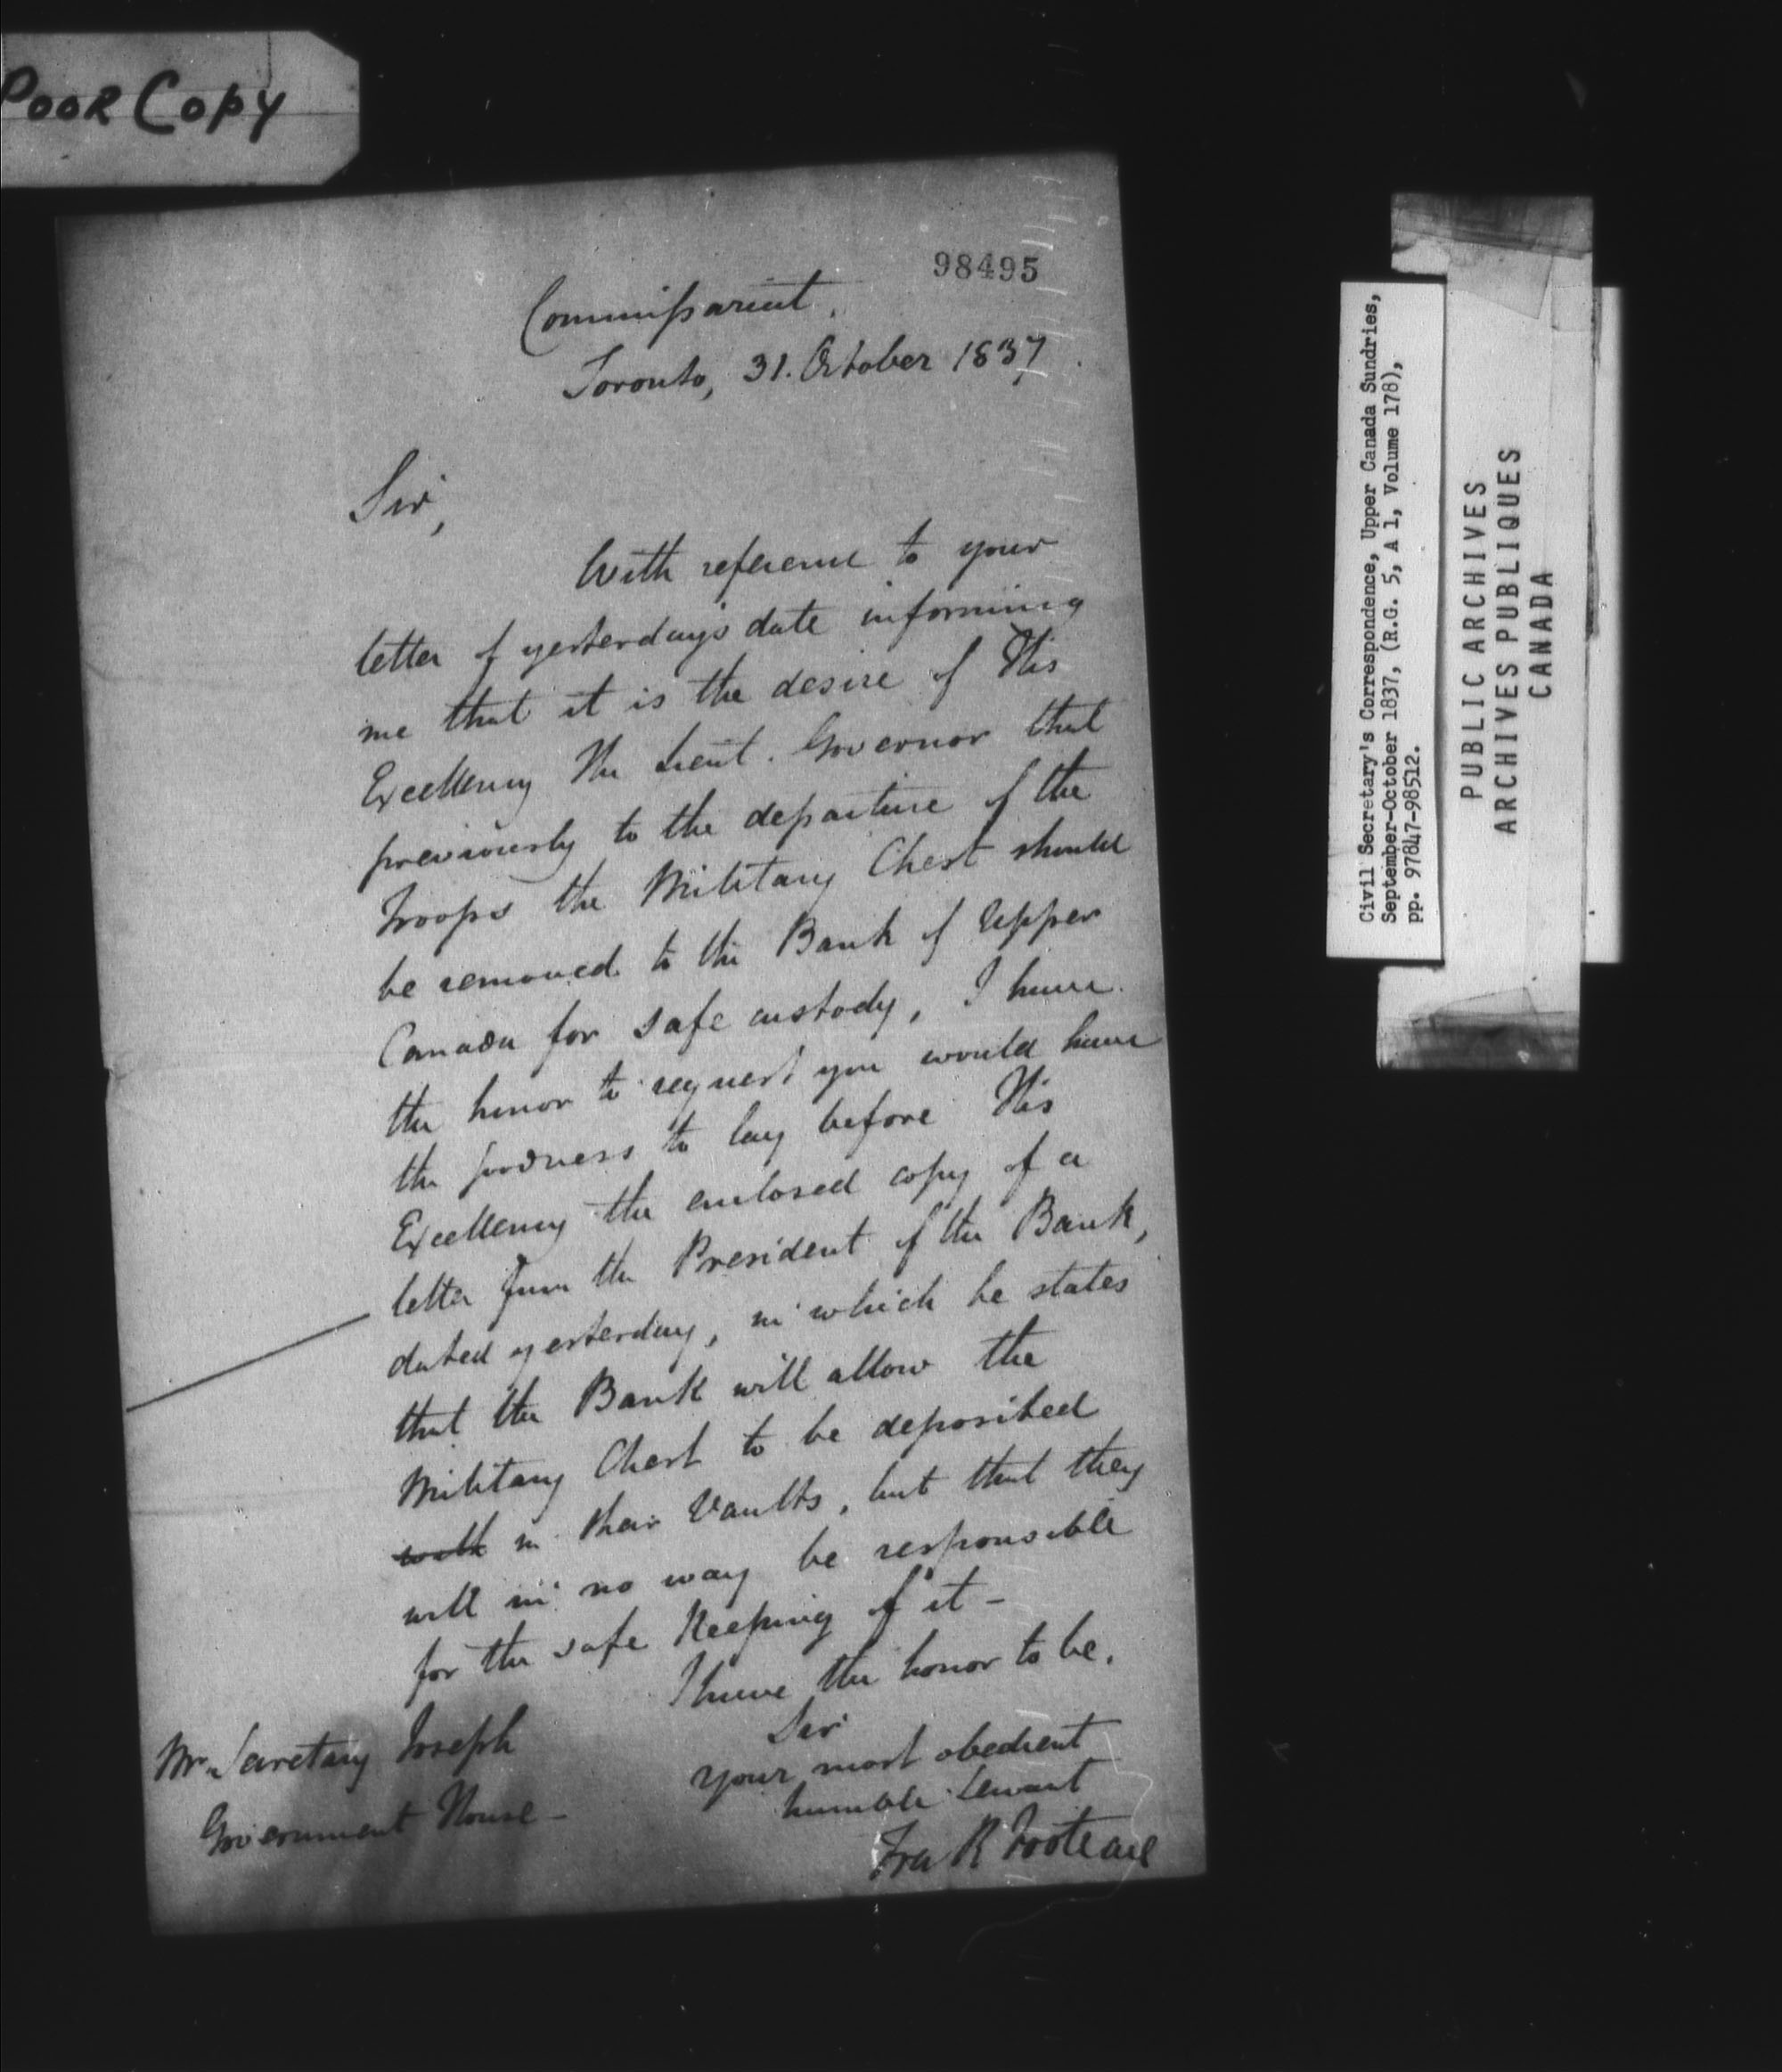 POOR COPY
98495
Commissariat,
Toronto, 31. October 1837
Sir,
With reference to your
letter of yesterday's date informing
me that it is the desire of His
Excellency The Lieut. Governor that
previously to the departure of the
Troops the Military Chest should
be removed to the Bank of Upper
Canada for safe custody, I have
the honor to request you would have
the goodness to lay before His
Excellency the enclosed copy of a
letter from the President of the Bank,
dated yesterday, in which he states
that the Bank will allow the
Military Chest to be deposited
with in their Vaults, but that they
will in no way be responsible
for the safe keeping of it -
I have the honor to be,
Sir
Your most obedient
humble Servant
Mr. Secretary Joseph
Government House -
Civil Secretary's Correspondence, Upper Canada Sundries,
September-October 1837, (R.G. 5, A 1, Volume 178),
pp. 97847-98512.
PUBLIC ARCHIVES
ARCHIVES PUBLIQUES
CANADA